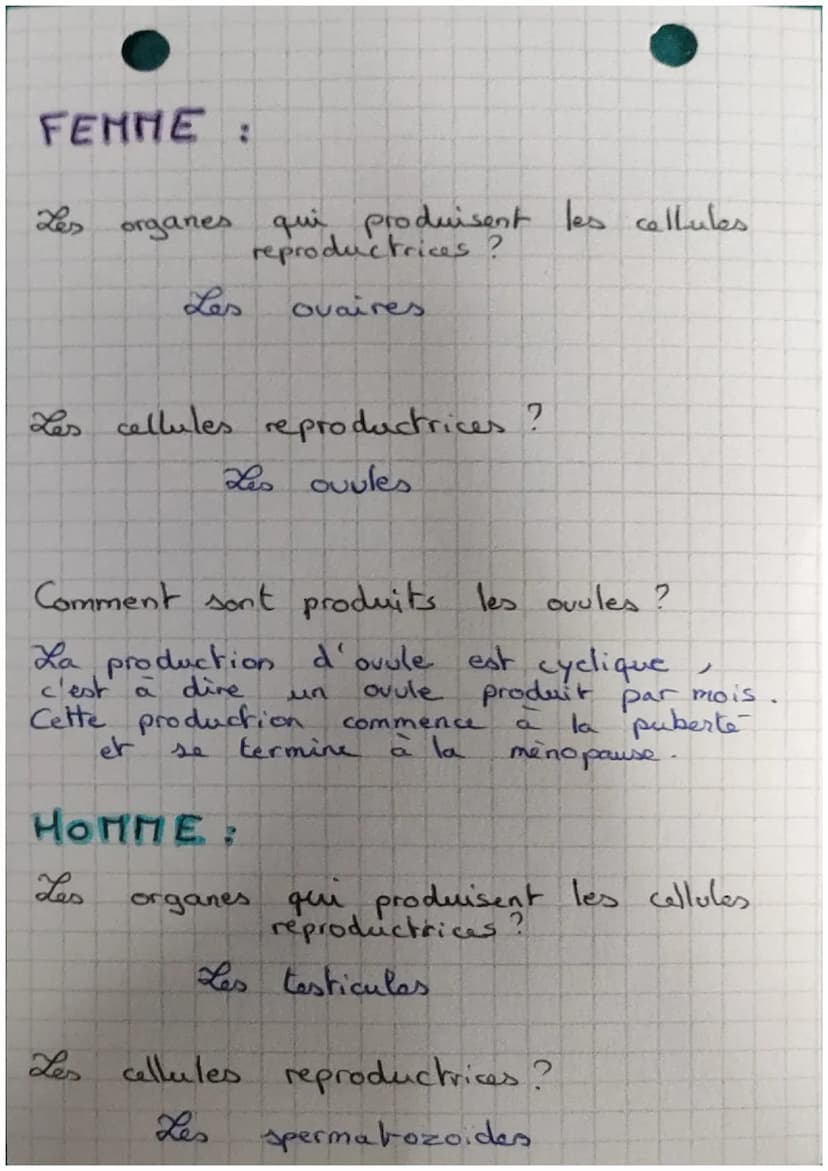 FEMME :
Les organes qui produisent les cellules
reproductrices ?
Les ovaires
Les cellules reproductrices ?
Les ovules
Comment sont produits les ovules ?
La production d'ovule est cyclique,
c'est à dire un ovule produit par mois.
Cette production commence à la puberté
et se termine à la ménopause.
HOMME :
Les organes qui produisent les cellules
reproductrices ?
Les testicules
Les cellules reproductrices ?
Les spermatozoides